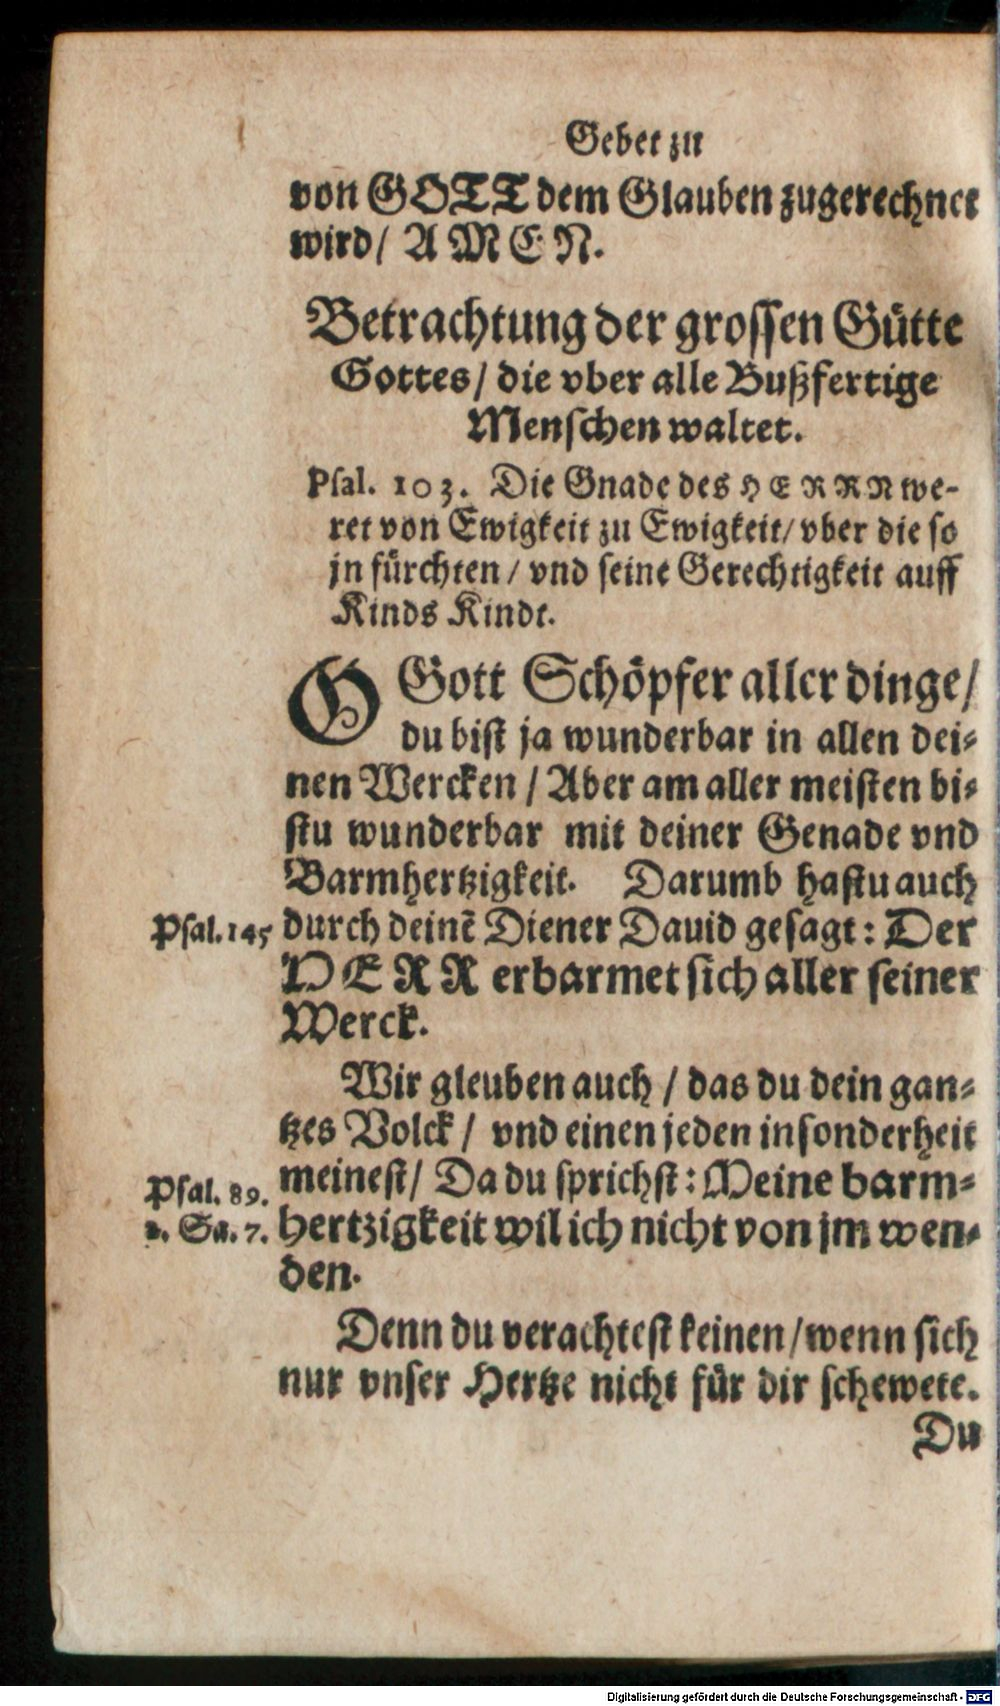 Gebet zu
von GOTT dem Glauben zugerechnet
wird/ AMEN.
Betrachtung der grossen Gütte
Gottes/ die vber alle Bußfertige
Menschen waltet.
Psal. 103. Die Gnade des HERRN we-
ret von Ewigkeit zu Ewigkeit/ vber die so
jn fürchten/ vnd seine Gerechtigkeit auff
Kinds Kindt.
O Gott Schöpfer aller dinge/
du bist ja wunderbar in allen dei-
nen Wercken/ Aber am aller meisten bi-
stu wunderbar mit deiner Genade vnd
Barmhertzigkeit. Darumb hastu auch
Psal. 145 durch deinẽ Diener Dauid gesagt: Der
HERR erbarmet sich aller seiner
Werck.
Wir gleuben auch/ das du dein gan-
tzes Volck/ vnd einen jeden insonderheit
Psal. 89. meinest/ Da du sprichst: Meine barm-
2. Sa. 7. hertzigkeit wil ich nicht von jm wen-
den.
Denn du verachtest keinen/ wenn sich
nur vnser Hertze nicht für dir schewete.
Du
Digitalisierung gefördert durch die Deutsche Forschungsgemeinschaft - DFG